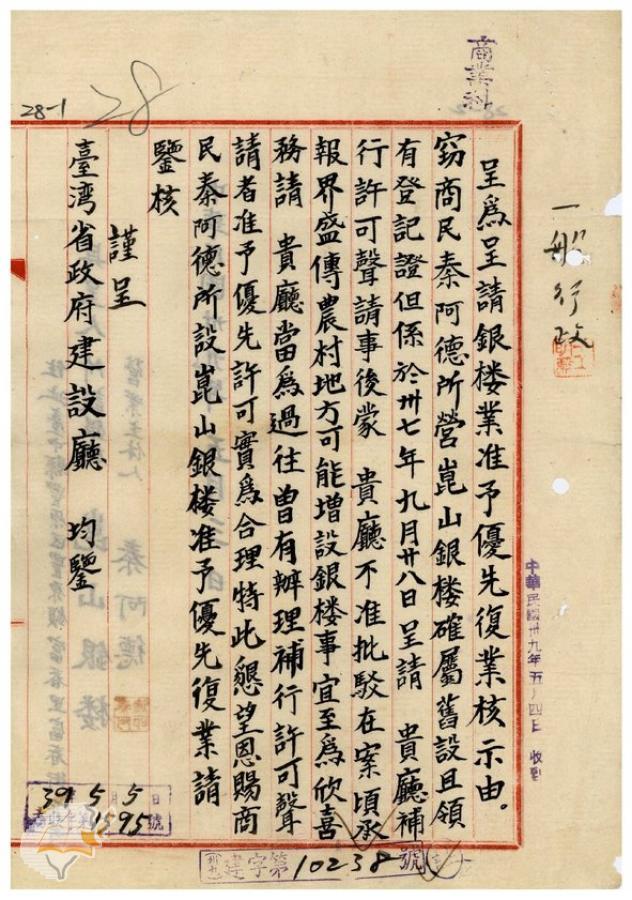 商業科
28-1
28
一般行政
呈為呈請銀楼業准予優先復業核示由。
窃商民秦阿德所營崑山銀楼確屬舊設且領
有登記證但係於卅七年九月廿八日呈請　貴廳補
行許可聲請事後蒙　貴廳不准批駁在案頃承
報界盛傳農村地方可能增設銀楼事宜至為欣喜
務請　貴廳當為過往曾有辦理補行許可聲
請者准予優先許可實為合理特此懇望恩賜商
民秦阿德所設崑山銀楼准予優先復業請
鑒核
謹呈
臺湾省政府建設廳　均鑒
中華民國卅九年五月四日 收到
39 5月5日
1595號
建字第10238號